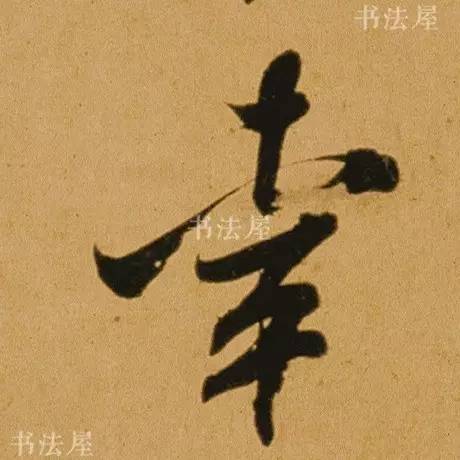 书法屋
幸
书法屋
书法屋